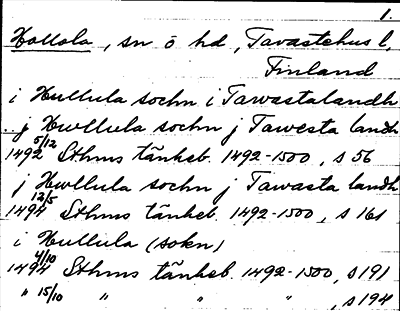 1.
Hollola, sn ö hd, Tavastehus l,
Finland
i Hullula sochn i Tawastalandh
j Hwllula sochn j Tawesta landh
1492 5/12 Sthms tänkeb. 1492-1500, s 56
j Hwllula sochn j Tawasta landh
1494 12/5 Sthms tänkeb. 1492-1500, s 161
i Hullula (sokn)
1494 4/10 Sthms tänkeb. 1492-1500, s 191
" 15/10 " " " , s 194